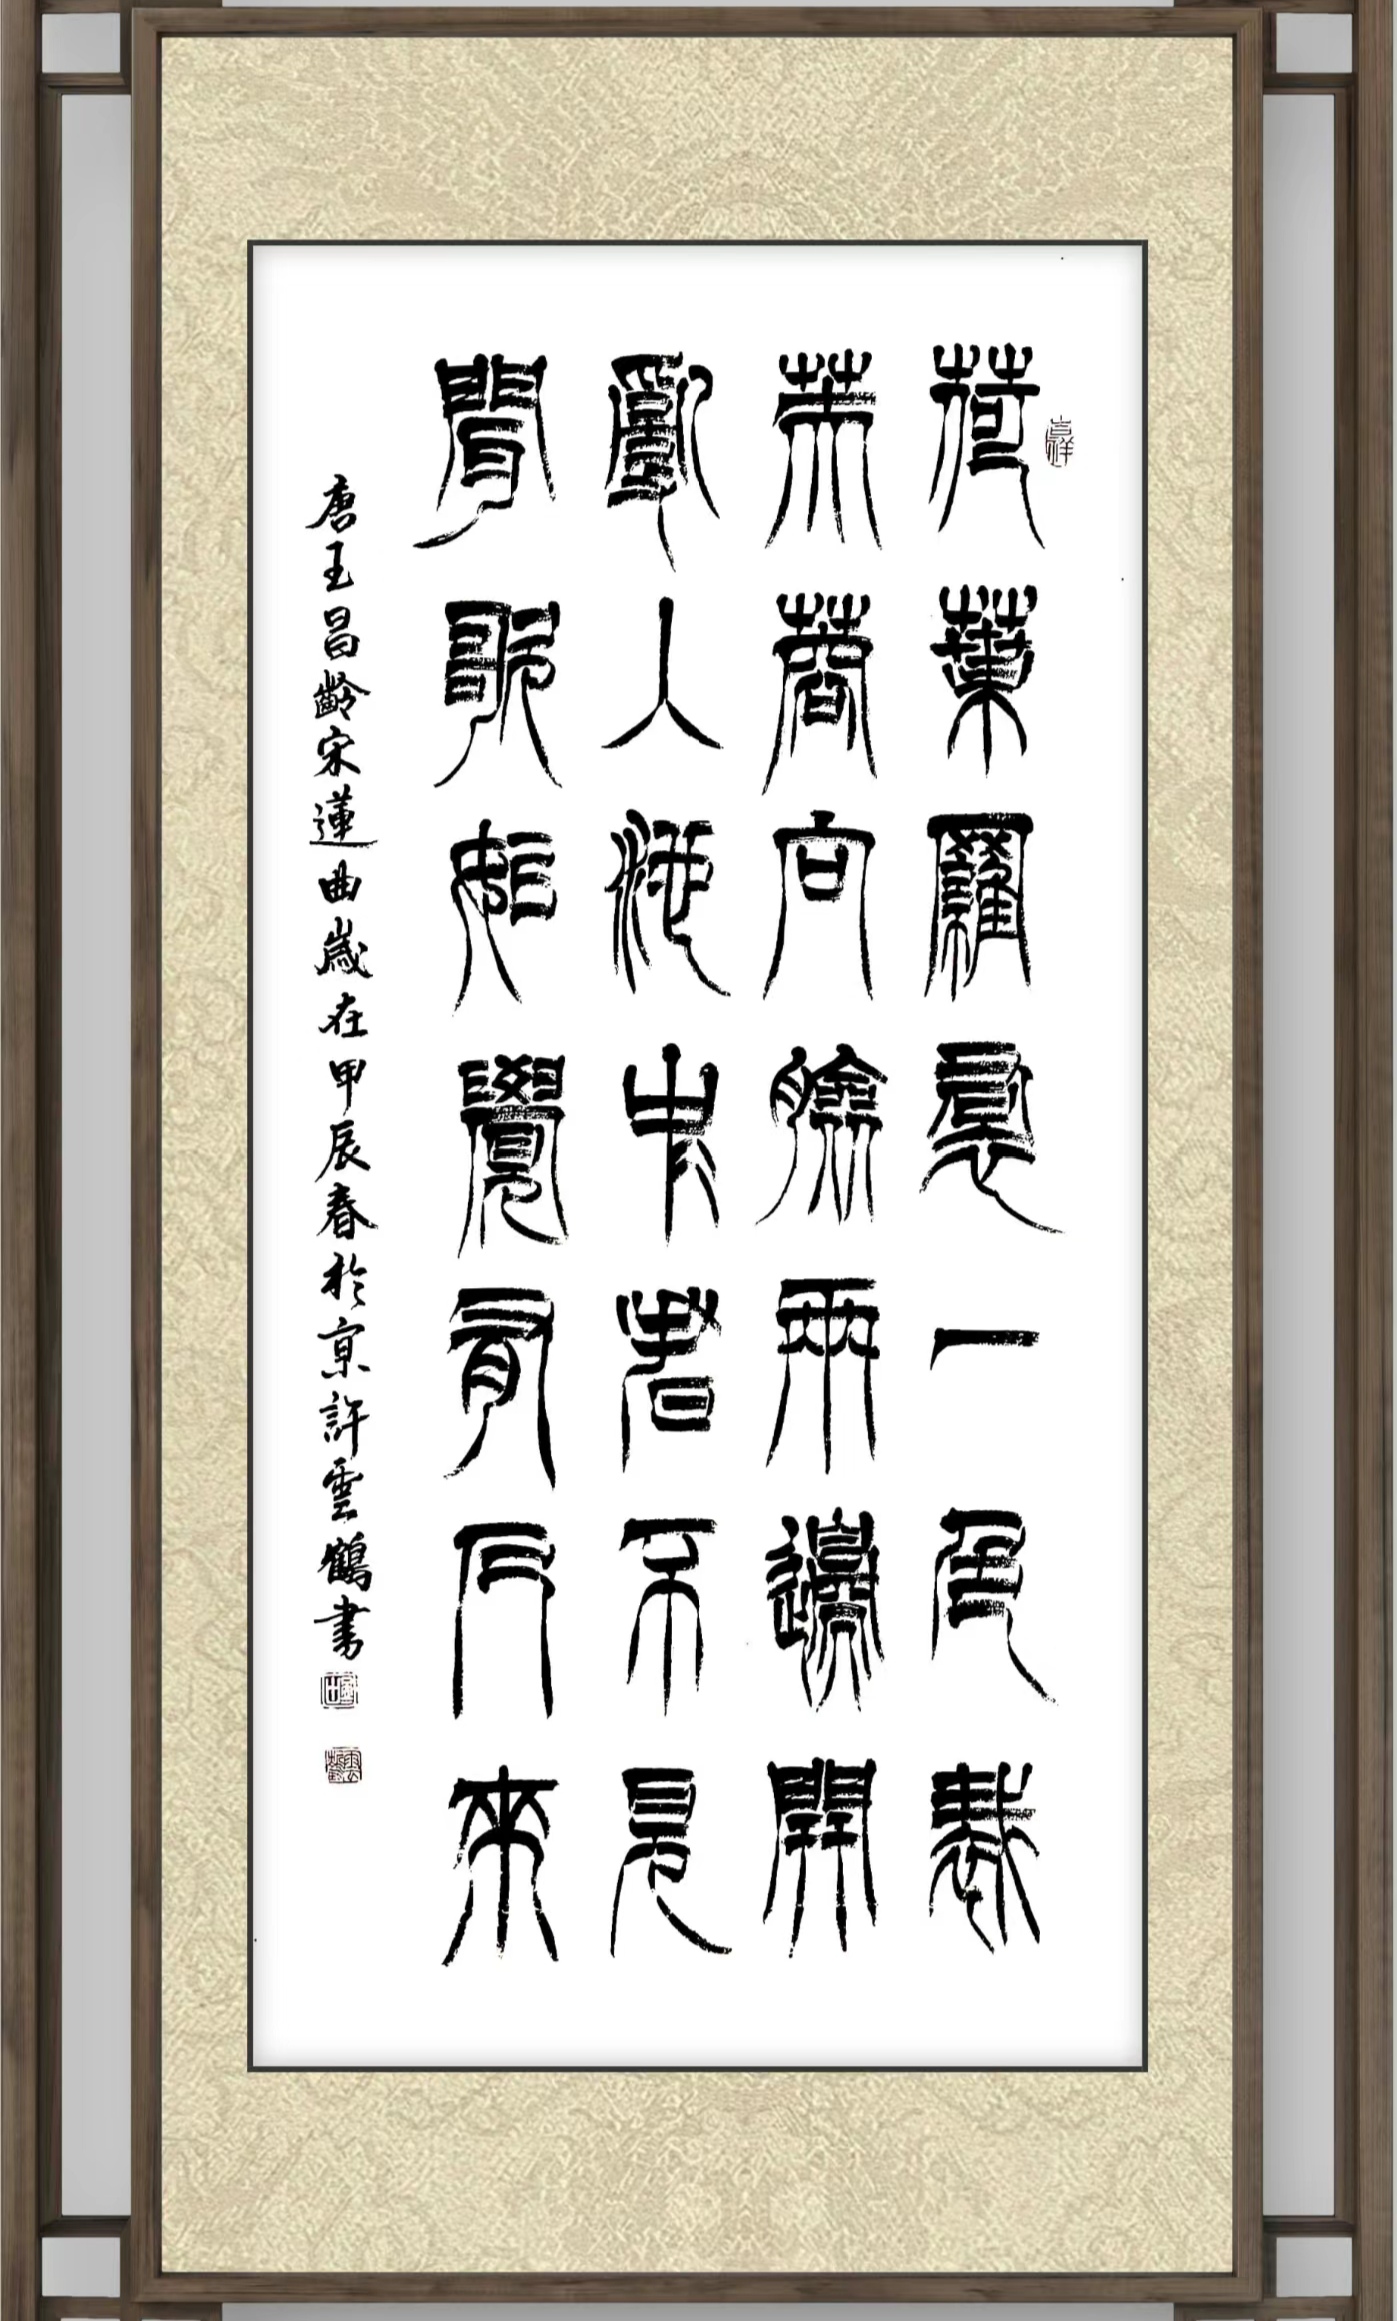 吉祥
荷葉羅裠一色裁
芙蓉向臉兩邊開
亂入池中看不見
聞歌始覺有人來
唐王昌齡采蓮曲歲在甲辰春於京許雲鶴書
雲鶴